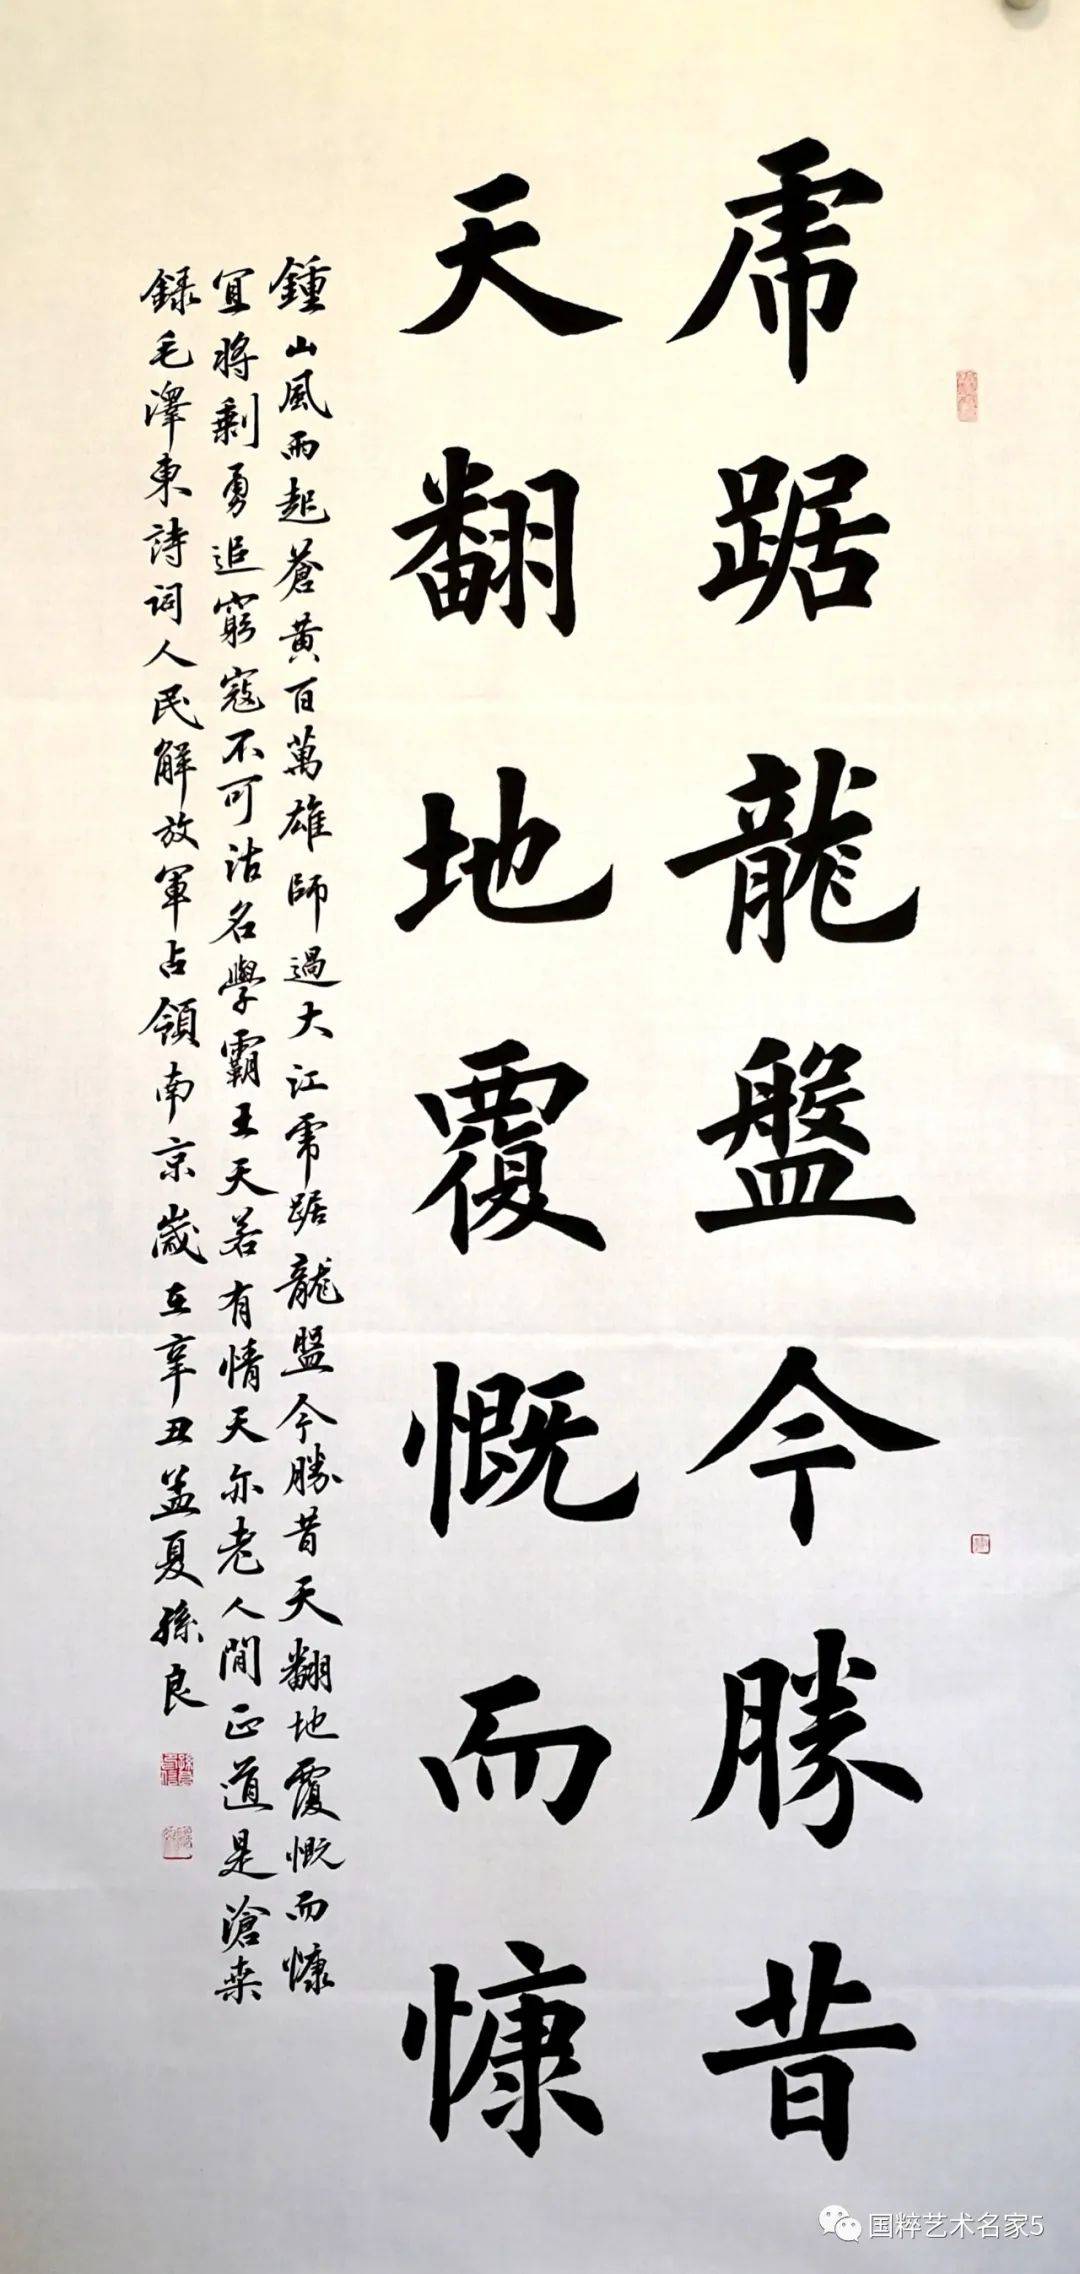 虎踞龍盤今勝昔
天翻地覆慨而慷
鍾山風雨起蒼黃百萬雄師過大江虎踞龍盤今勝昔天翻地覆慨而慷
宜將剩勇追窮寇不可沽名學霸王天若有情天亦老人間正道是滄桑
錄毛澤東詩詞人民解放軍占領南京歲在辛丑孟夏孫良
国粹艺术名家5